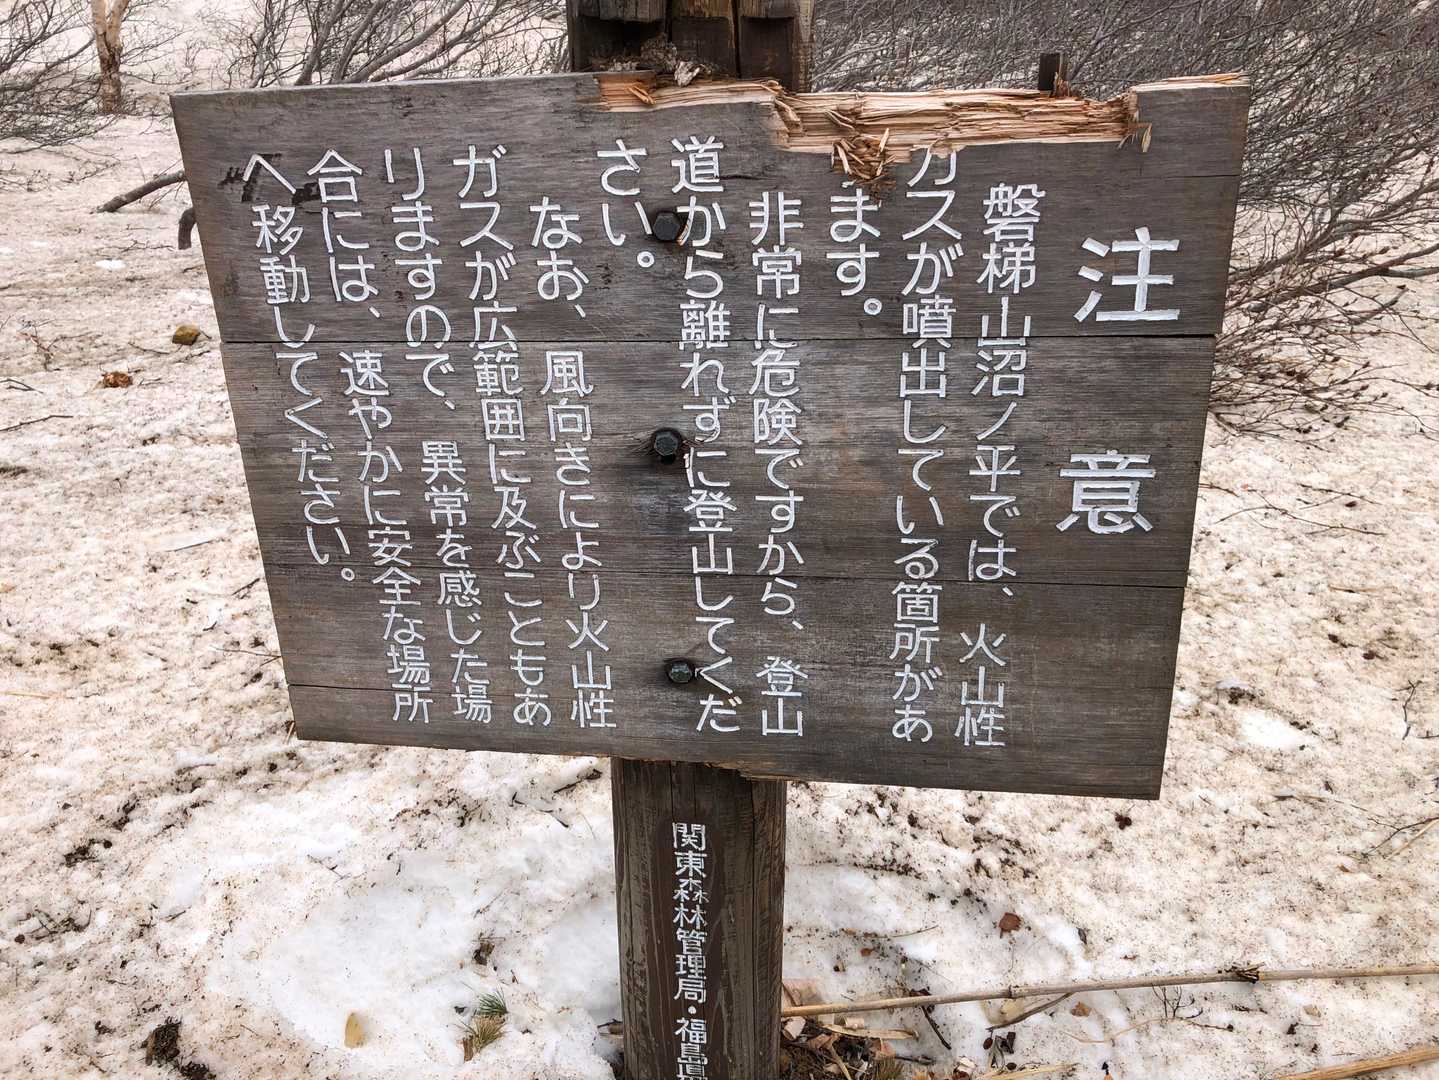 注意
磐梯山沼ノ平では、火山性
ガスが噴出している箇所があ
ります。
非常に危険ですから、登山
道から離れずに登山してくだ
さい。
なお、風向きにより火山性
ガスが広範囲に及ぶこともあ
りますので、異常を感じた場
合には、速やかに安全な場所
へ移動してください。
関東森林管理局・福島県